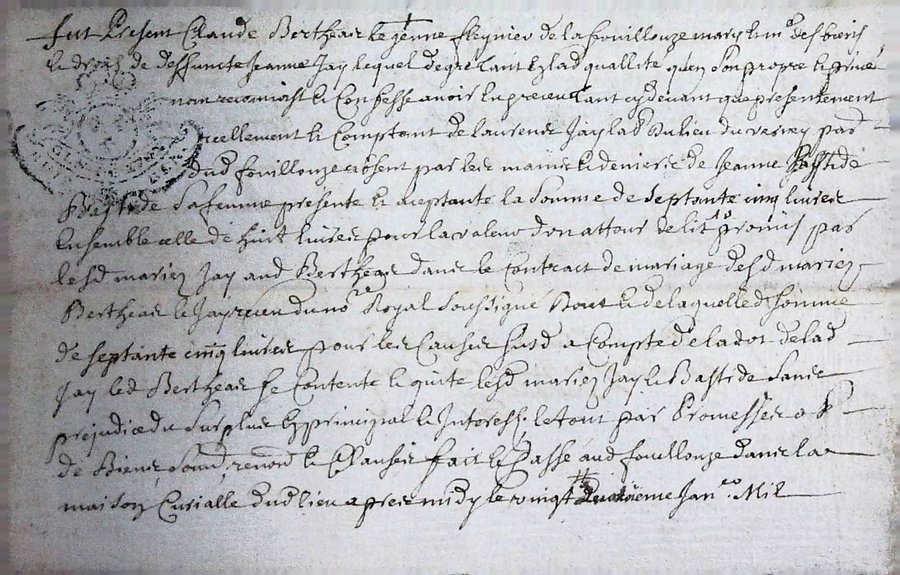 fut Present Claude Bertheas le jenne fleynier de la fouillouze mary & m.e des biens
& droitz de deffuncte Jeanne Jay lequel de gre tant & lad quallite quen son propre & prive
nom reconnoist & Confesse avoir & receu tant cy devant que presentement
reellement & Comptant de Laurens Jay lad du lieu du verney par
dud fouillouze absent par les mains & deniers de Jeanne
Bastide sa femme presente & aceptante la Somme de septante cinq livres
Ensemble celle de huit livres pour la valeur don attour de lit promis par
lesd mariez Jay aud Bertheas dans le Contract de mariage desd mariez
Bertheas & Jay receu du no.re Royal Soussigne dont & de laquelle d Somme
de septante cinq livres pour les Causes susd a Compte de la dot de lad
Jay led Bertheas se Contente & quite lesd mariez Jay & Bastide Sans
prejudice du Surplus & principal & Interestz le tout par Promesses o
de Biens Soumd renond & Clauses fait & Passe aud fouillouze dans la
maison Curialle dud lieu apres midy le vingt Jan.er Mil